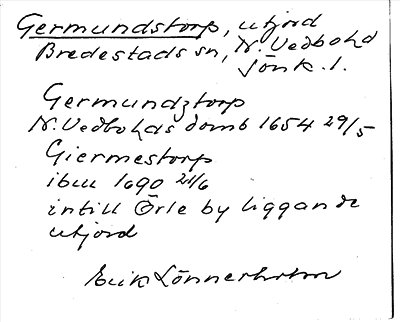 Germundstorp, utjord
Bredestads sn, N. Vedbo hd
Jönk. l.
Germundztorp
N. Vedbo hds domb 1654 29/5
Giermestorp
ibm 1690 21/6
intill Örle by liggande
utjord
Erik Lönnerholm